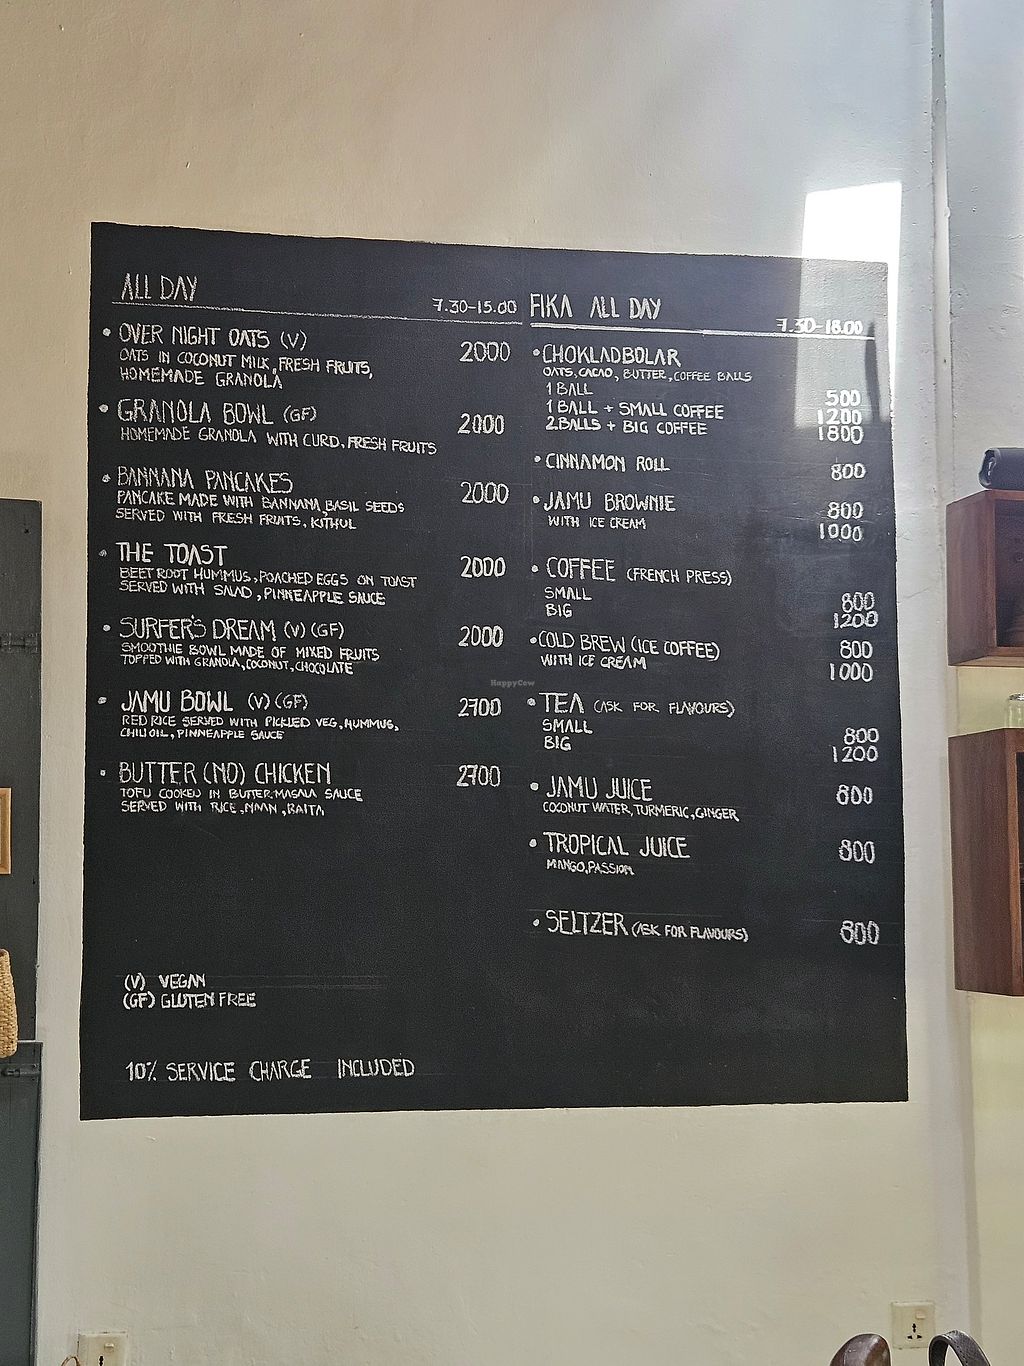 ALL DAY
7.30-15.00
• OVER NIGHT OATS (V) 2000
OATS IN COCONUT MILK, FRESH FRUITS,
HOMEMADE GRANOLA
• GRANOLA BOWL (GF) 2000
HOMEMADE GRANOLA WITH CURD, FRESH FRUITS
• BANNANA PANCAKES 2000
PANCAKE MADE WITH BANNANA, BASIL SEEDS
SERVED WITH FRESH FRUITS, KITHUL
• THE TOAST 2000
BEETROOT HUMMUS, POACHED EGGS ON TOAST
SERVED WITH SALAD, PINNEAPPLE SAUCE
• SURFER'S DREAM (V) (GF) 2000
SMOOTHIE BOWL MADE OF MIXED FRUITS
TOPPED WITH GRANOLA, COCONUT, CHOCOLATE
• JAMU BOWL (V) (GF) 2700
RED RICE SERVED WITH PICKLED VEG, HUMMUS,
CHILI OIL, PINNEAPPLE SAUCE
• BUTTER (NO) CHICKEN 2700
TOFU COOKED IN BUTTER MASALA SAUCE
SERVED WITH RICE, NAAN, RAITA
(V) VEGAN
(GF) GLUTEN FREE
10% SERVICE CHARGE INCLUDED
FIKA ALL DAY
7.30-18.00
• CHOKLADBOLAR
OATS, CACAO, BUTTER, COFFEE BALLS
1 BALL 500
1 BALL + SMALL COFFEE 1200
2 BALLS + BIG COFFEE 1800
• CINNAMON ROLL 800
• JAMU BROWNIE 800
WITH ICE CREAM 1000
• COFFEE (FRENCH PRESS)
SMALL 800
BIG 1200
• COLD BREW (ICE COFFEE) 800
WITH ICE CREAM 1000
• TEA (ASK FOR FLAVOURS)
SMALL 800
BIG 1200
• JAMU JUICE 800
COCONUT WATER, TURMERIC, GINGER
• TROPICAL JUICE 800
MANGO, PASSION
• SELTZER (ASK FOR FLAVOURS) 800
HappyCow